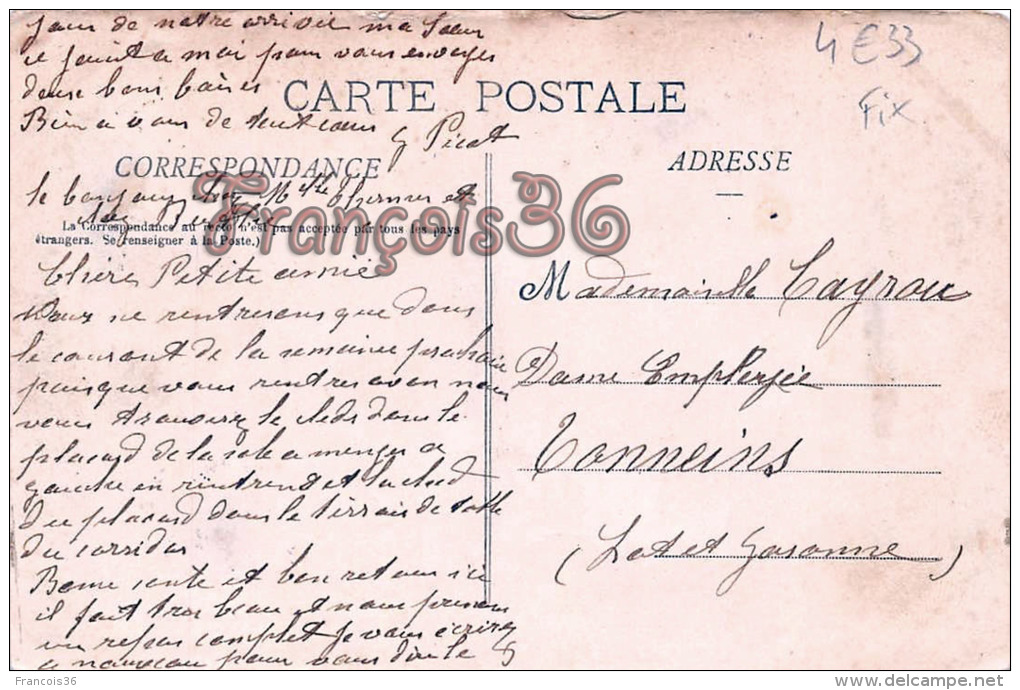 jour de notre arrivée ma Soeur
se joint a moi pour vous envoyer
deux bons baisers
Bien a vous de tout coeur
G Picat
4 E 33
Fix
CARTE POSTALE
CORRESPONDANCE
ADRESSE
le bonjour Mlle Thermes et
La Correspondance au recto n'est pas acceptée par tous les pays
étrangers. Se renseigner à la Poste.)
François36
Chère Petite amie
Nous ne rentrerons que dans
le courant de la semaine prochaine
puisque vous rentrez avan nous
vous trouverez le cleds dans le
placard de la sale a menger a
gauche en rintrent et la cled
du placard dans le tirroir de table
du corridor
Bonne sante et bon retour ici
il fait tros beau et nous prenons
un repos complet Je vous écrirez
a nouveau pour vous dire le
Mademoiselle Cayrou
Dame Employée
Tonneins
(Lot et Garonne)
François36
delcampe.net